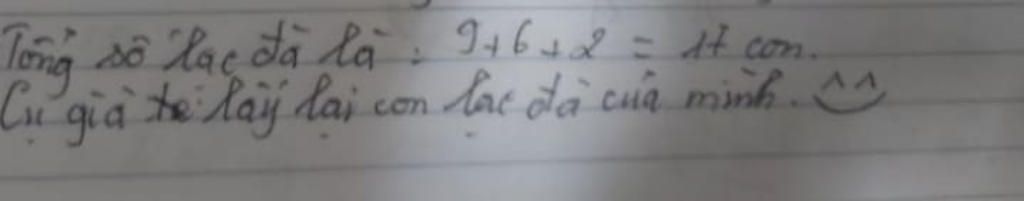 Tổng số lạc đà là : 9+6+2 = 17 con.
Cụ già lấy lại con lạc đà của mình. ^^